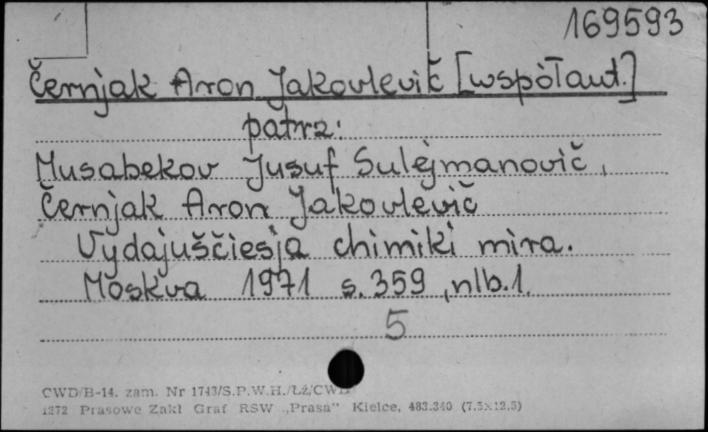 169593
Černjak Aron Jakovlevič [współaut.]
patrz:
Musabekov Jusuf Sulejmanovič,
Černjak Aron Jakovlevič
Vydajuščiesja chimiki mira.
Moskva 1971 s. 359, nlb. 1.
5
CWD/B-14. zam. Nr 1743/S.P.W.H./Łź/CWD
1272 Prasowe Zakł Graf RSW „Prasa” Kielce, 483.340 (7.5×12.5)